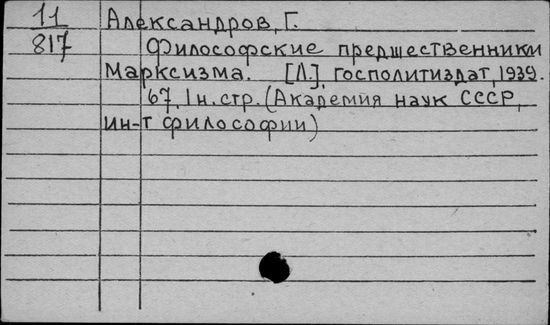 11
817
Александров, Г.
Философские предшественники
Марксизма. [Л.], Госполитиздат, 1939.
67, 1 н. стр. (Академия наук СССР,
ин-т философии)